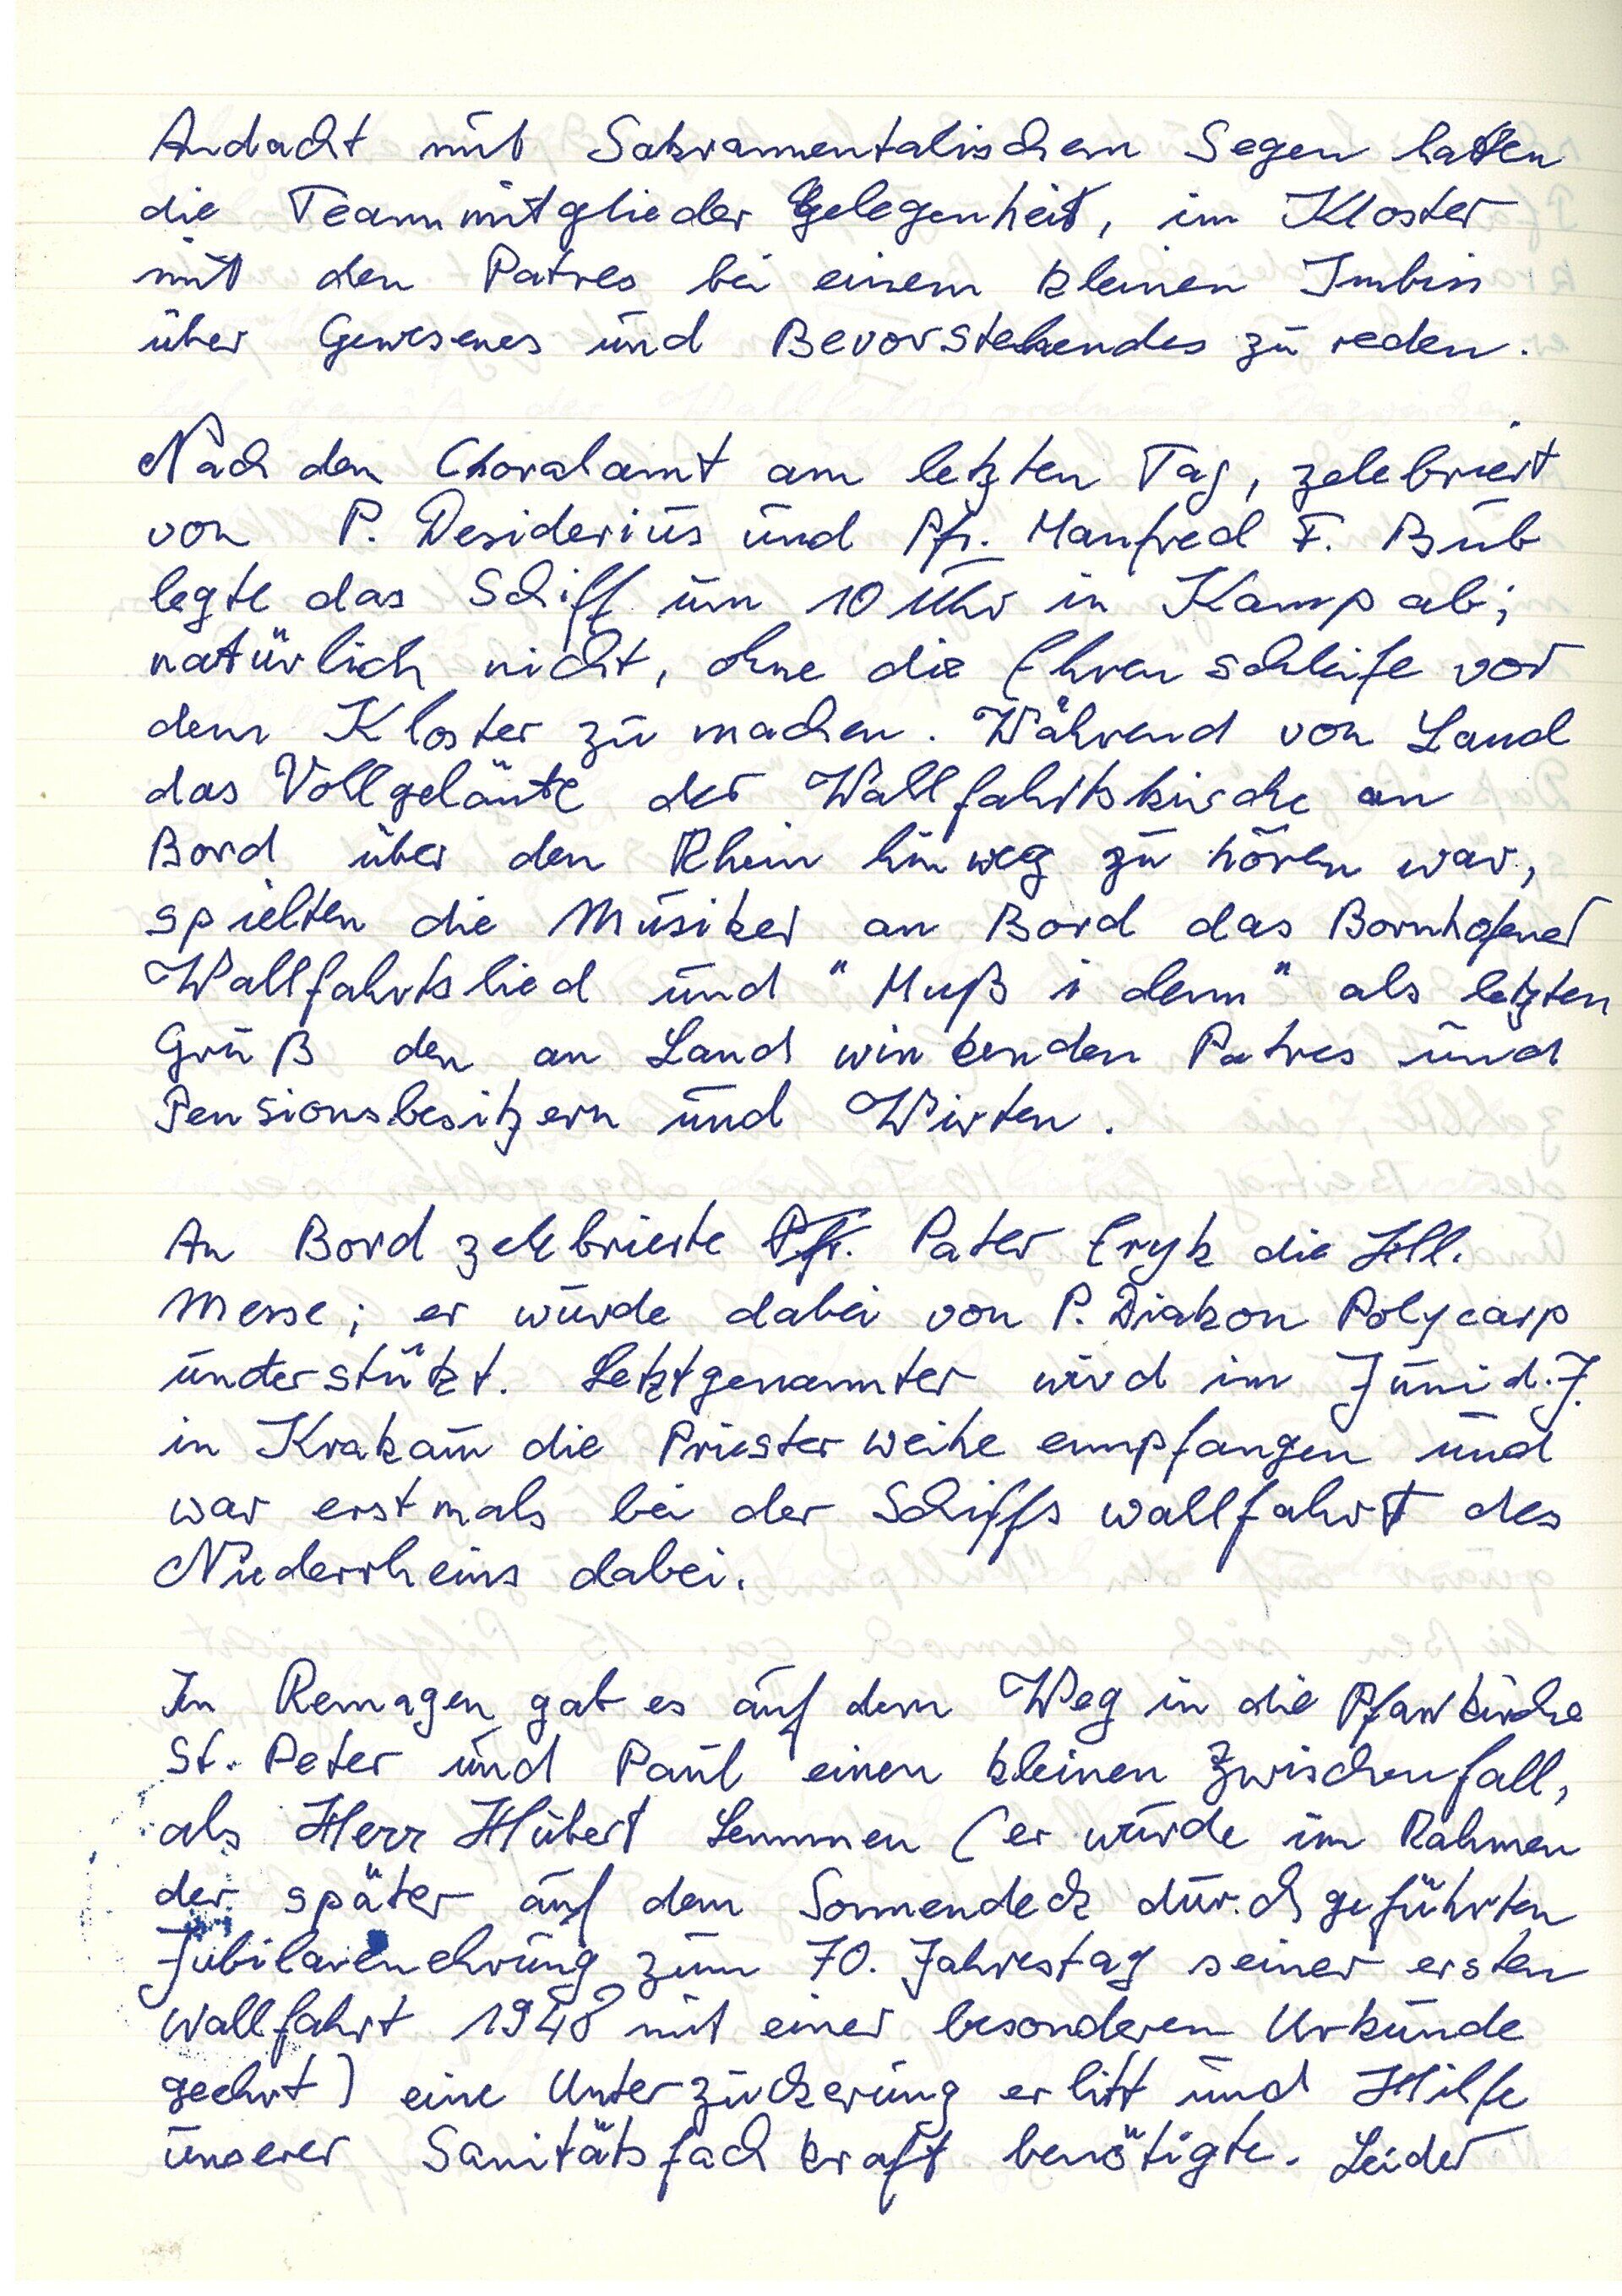 Andacht mit Sakramentalischem Segen hatten
die Teammitglieder Gelegenheit, im Kloster
mit den Patres bei einem kleinen Imbiss
über Gewesenes und Bevorstehendes zu reden.
Nach dem Choralamt am letzten Tag, zelebriert
von P. Desiderius und Pfr. Manfred F. Büb
legte das Schiff um 10 Uhr in Kamp ab;
natürlich nicht, ohne die Ehrenschleife vor
dem Kloster zu machen. Während von Land
das Vollgeläute der Wallfahrtskirche an
Bord über den Rhein hinweg zu hören war,
spielten die Musiker an Bord das Bornhofener
Wallfahrtslied und "Muß i denn" als letzten
Gruß den an Land winkenden Patres und
Pensionsbesitzern und Wirten.
An Bord zelebrierte Pfr. Pater Eryk die Hll.
Messe; er wurde dabei von P. Diakon Polycarp
unterstützt. Letztgenannter wird im Juni d. J.
in Krakau die Priesterweihe empfangen und
war erstmals bei der Schiffswallfahrt des
Niederrheins dabei.
In Remagen gab es auf dem Weg in die Pfarrkirche
St. Peter und Paul einen kleinen Zwischenfall,
als Herr Hubert Lemmen (er wurde im Rahmen
der später auf dem Sonnendeck durchgeführten
Jubilarenehrung zum 70. Jahrestag seiner ersten
Wallfahrt 1948 mit einer besonderen Urkunde
geehrt) eine Unterzuckerung erlitt und Hilfe
unserer Sanitätsfachkraft benötigte. Leider